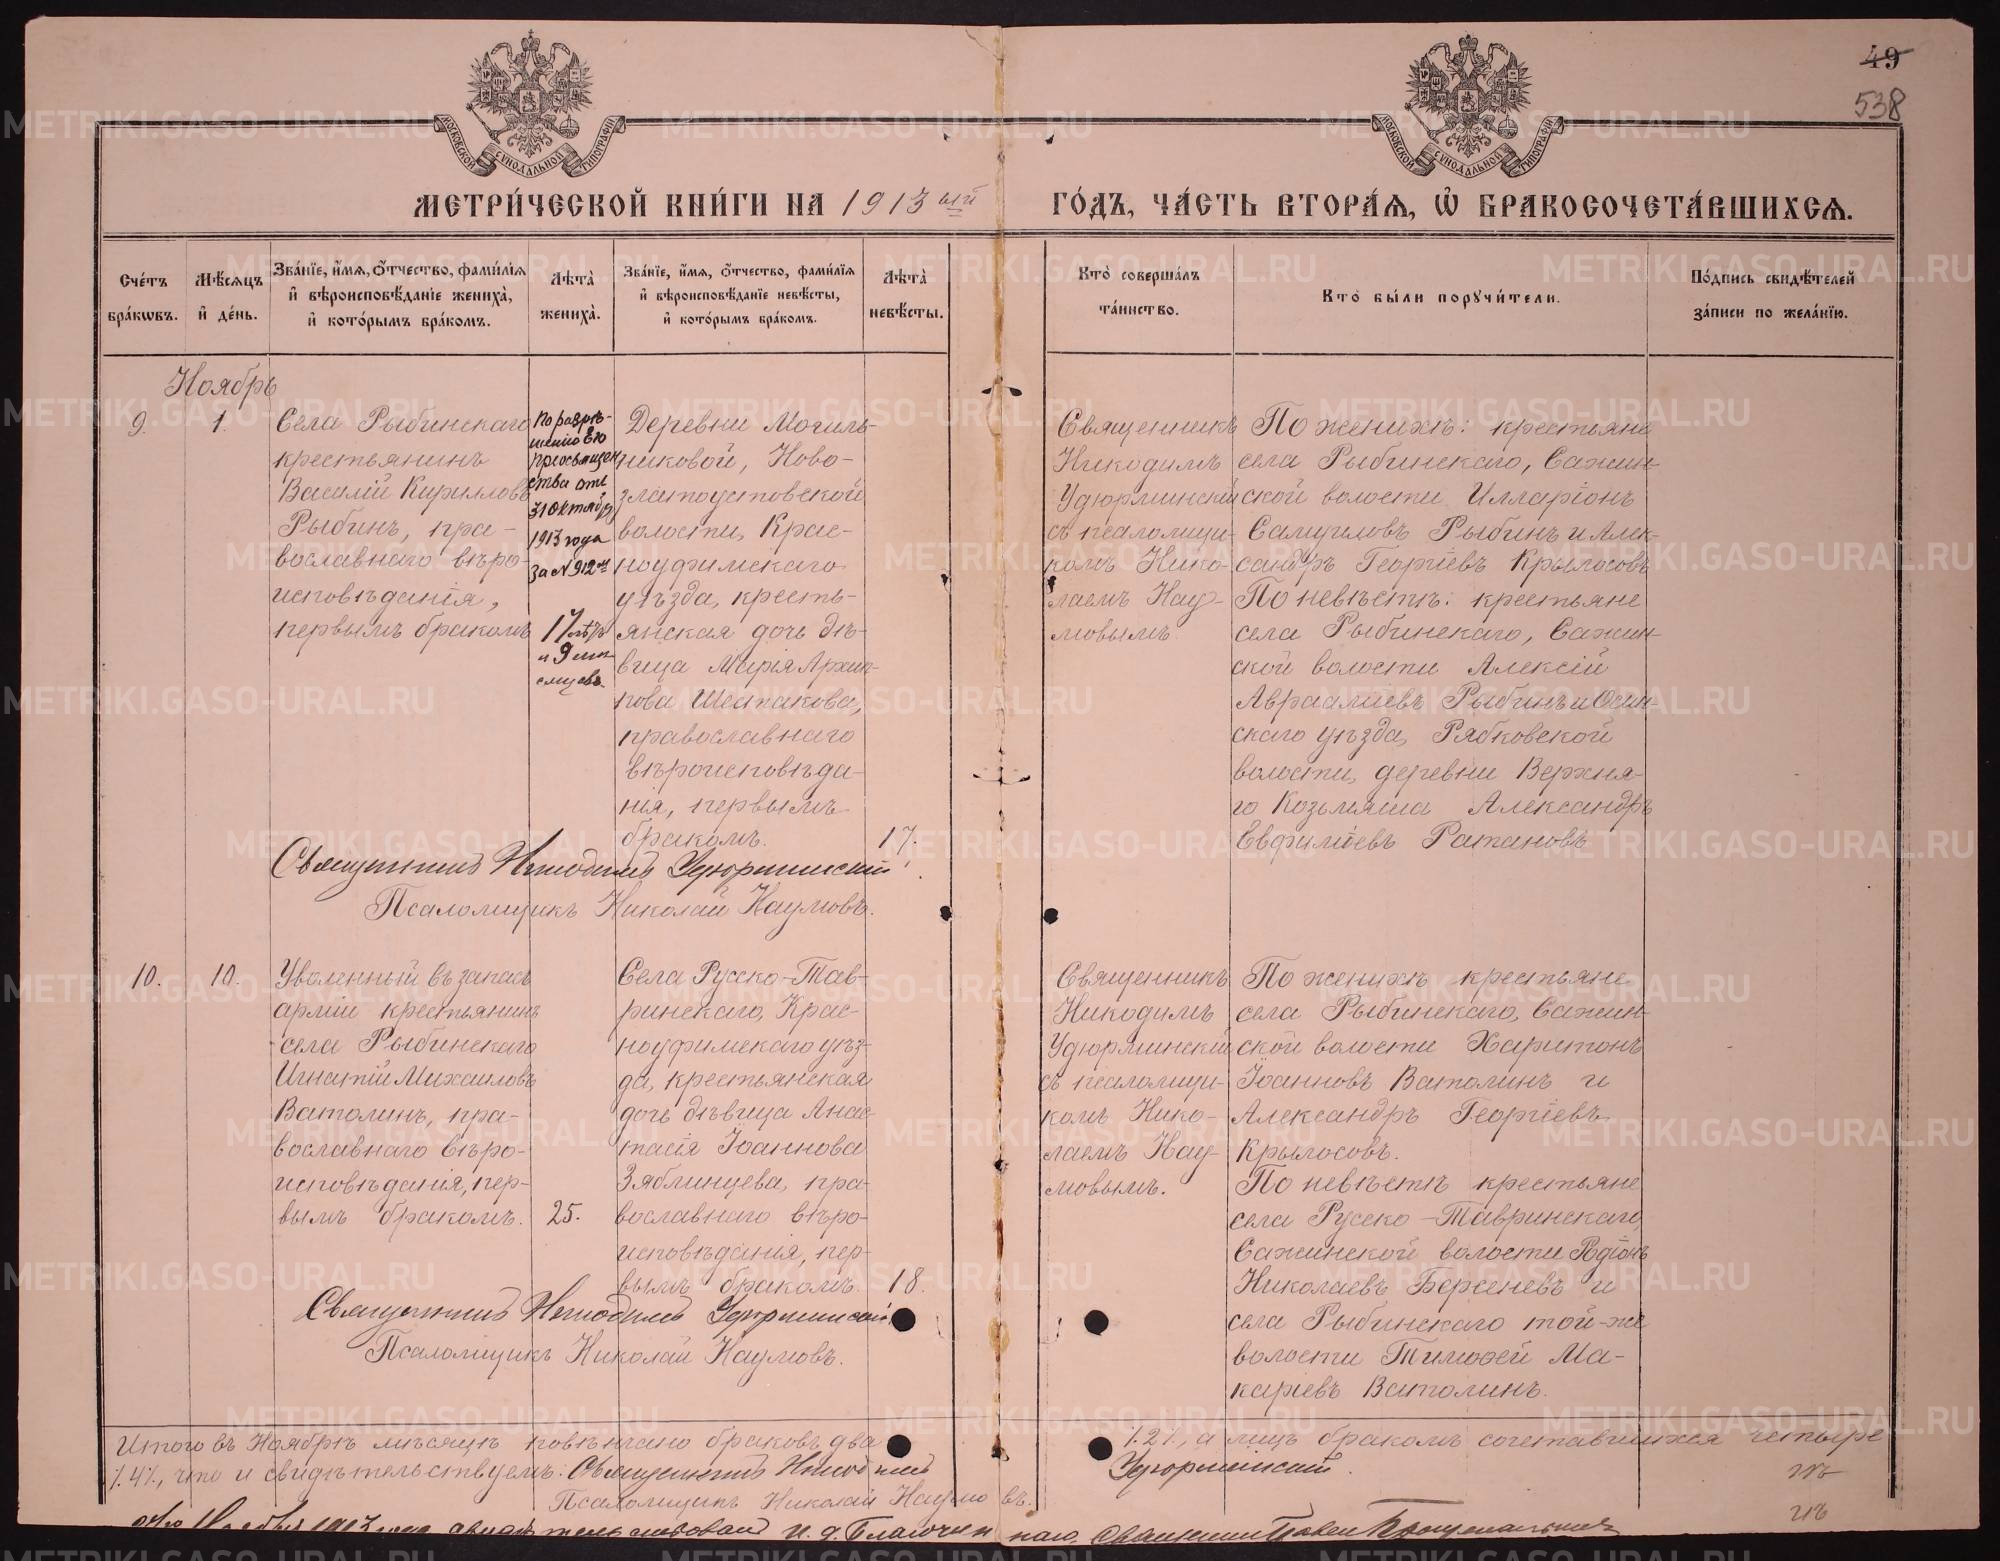 49
538
МОСКОВСКОЙ СУНОДАЛЬНОЙ ТИПОГРАФІИ
МОСКОВСКОЙ СУНОДАЛЬНОЙ ТИПОГРАФІИ
МЕТРИ́ЧЕСКОЙ КНИ́ГИ НА 1913 ый
ГО́ДЪ, ЧА́СТЬ ВТОРА́Я, Ѡ БРАКОСОЧЕТА́ВШИХСЯ.
Сче́тъ бра́кѡвъ.
Мѣ́сяцъ и҆ де́нь.
Зва́нїе, и҆́мя, ѻ҆́тчество, фами́лїя
и҆ вѣроисповѣ́данїе жениха̀,
и҆ кото́рымъ бра́комъ.
Лѣта̀ жениха̀.
Зва́нїе, и҆́мя, ѻ҆́тчество, фами́лїя
и҆ вѣроисповѣ́данїе невѣ́сты,
и҆ кото́рымъ бра́комъ.
Лѣта̀ невѣ́сты.
Кто̀ соверша́лъ
та́инство.
Кто̀ бы́ли поручи́тели.
По́дпись свидѣ́телей
за́писи по жела́нїю.
Ноябрь
9.
1.
Села Рыбинскаго
крестьянинъ
Василій Кирилловъ
Рыбинъ, пра-
вославнаго вѣро-
исповѣданія,
первымъ бракомъ
По разрѣ-
шенію Его
Преосвящен
ства отъ
31 Октября
1913 года
за № 912
17 лѣтъ
и 9 мѣ-
сяцевъ
Деревни Могиль-
никовой, Ново-
златоустовской
волости, Крас-
ноуфимскаго
уѣзда, кресть-
янская дочь дѣ-
вица Марія Архип-
пова Шестакова,
православнаго
вѣроисповѣда-
нія, первымъ
бракомъ.
17.
Священникъ
Никодимъ
Удюрминскій
съ псаломщи-
комъ Нико-
лаемъ Нау-
мовымъ
По женихѣ: крестьяне
села Рыбинскаго, Сажин-
ской волости Илларіонъ
Самуиловъ Рыбинъ и Алек-
сандръ Георгіевъ Крылосовъ
По невѣстѣ: крестьяне
села Рыбинскаго, Сажин-
ской волости Алексій
Авраамиевъ Рыбинъ и Осин-
скаго уѣзда, Рябковской
волости, деревни Верхня-
го Козьмяша Александръ
Евфиміевъ Ратановъ
Священникъ Никодимъ Удюрминскій
Псаломщикъ Николай Наумовъ.
10.
10.
Уволенный въ запасъ
арміи крестьянинъ
села Рыбинскаго
Игнатій Михаиловъ
Ватолинъ, пра-
вославнаго вѣро-
исповѣданія, пер-
вымъ бракомъ.
25.
Села Русско-Тав-
ринскаго, Крас-
ноуфимскаго уѣз-
да, крестьянская
дочь дѣвица Анас-
тасія Іоаннова
Зяблинцева, пра-
вославнаго вѣро-
исповѣданія, пер-
вымъ бракомъ.
18.
Священникъ
Никодимъ
Удюрминскій
съ псаломщи-
комъ Нико-
лаемъ Нау-
мовымъ.
По женихѣ крестьяне
села Рыбинскаго, Сажин-
ской волости Харитонъ
Іоанновъ Ватолинъ и
Александръ Георгіевъ
Крылосовъ.
По невѣстѣ крестьяне
села Русско-Тавринскаго,
Сажинской волости Родіонъ
Николаевъ Берсеневъ и
села Рыбинскаго той-же
волости Тимоѳей Ма-
каріевъ Ватолинъ.
Священникъ Никодимъ Удюрминскій
Псаломщикъ Николай Наумовъ.
Итого въ Ноябрѣ мѣсяцѣ повѣнчано браковъ два /.2/., а лицъ бракомъ сочетавшихся четыре
/.4/., что и свидѣтельствуемъ: Священникъ Никодимъ Удюрминскій.
Псаломщикъ Николай Наумовъ.
1913 года свидѣтельствовалъ И. д. Благочиннаго, Священникъ Павелъ
METRIKI.GASO-URAL.RU